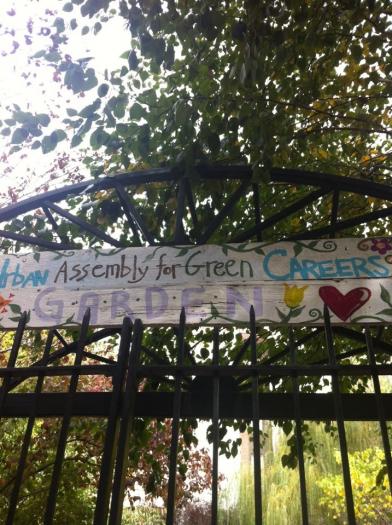 Urban Assembly for Green CAREERS
GARDEN